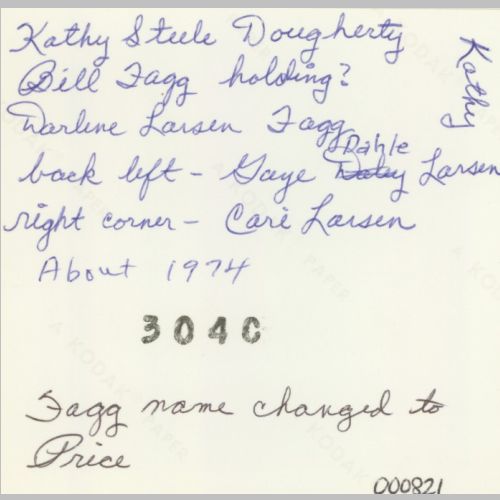 Kathy Steele Dougherty
Kathy
Bill Fagg holding?
Darlene Larsen Fagg
Dahle
back left - Gaye Larsen
right corner - Cari Larsen
About 1974
304C
Fagg name changed to
Price
000821